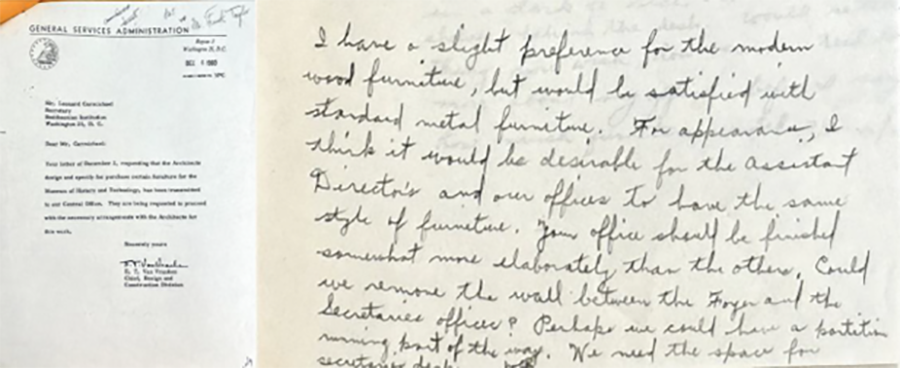 Mr. Frank Taylor
GENERAL SERVICES ADMINISTRATION
Region 3
Washington 25, D.C.
DEC 1960
Mr. Leonard Carmichael
Secretary
Smithsonian Institution
Washington 25, D. C.
Dear Mr. Carmichael:
Your letter of December 2, requesting that the Architects
design and specify for purchase certain furniture for the
Museum of History and Technology, has been transmitted
to our Central Office. They are being requested to proceed
with the necessary arrangements with the Architects for
this work.
Sincerely yours
Chief, Design and
Construction Division
I have a slight preference for the modern
wood furniture, but would be satisfied with
standard metal furniture. For appearance, I
think it would be desirable for the Assistant
Director's and our offices to have the same
style of furniture. Your office should be finished
somewhat more elaborately than the others. Could
we remove the wall between the Foyer and the
Secretaries offices? Perhaps we could have a partition
running part of the way. We need the space for
secretaries desk